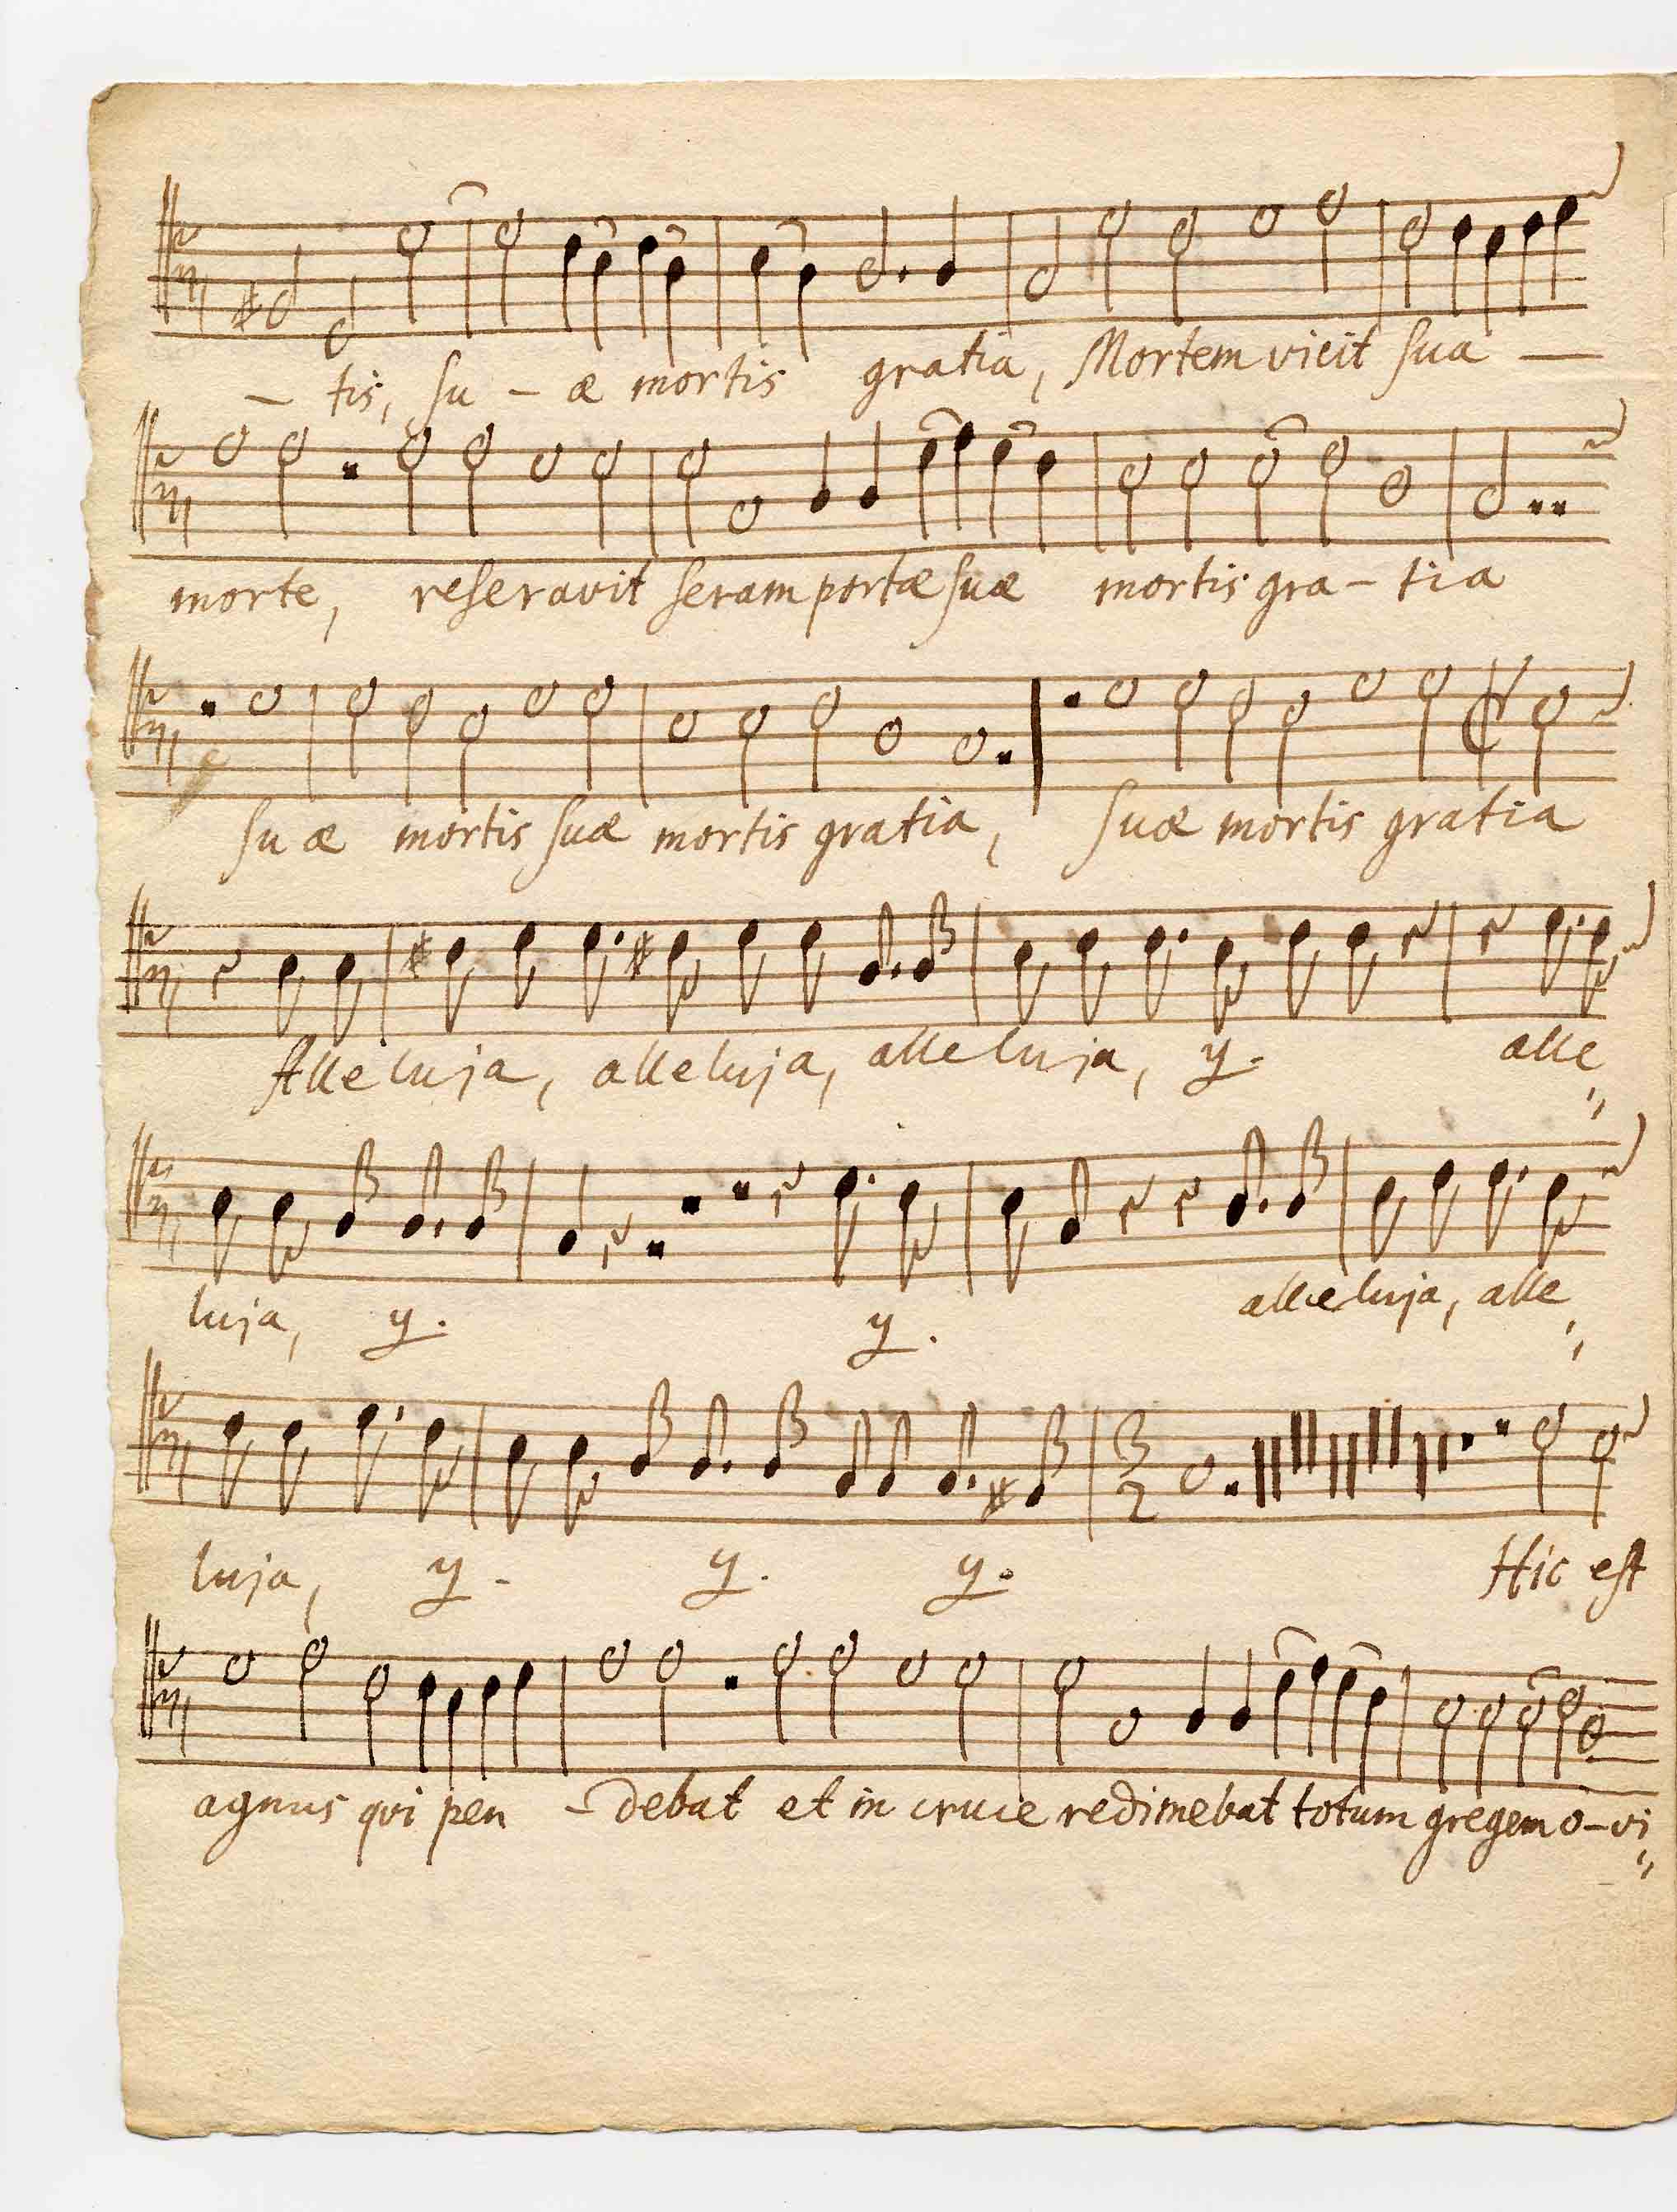 – tis, su – æ mortis gratia, Mortem vicit sua —
morte, reseravit seram portæ suæ mortis gra – tia
suæ mortis suæ mortis gratia, suæ mortis gratia
Alleluja, alleluja, alleluja, y. alle„
luja, y. y. alleluja, alle„
3
2
luja, y. y. y. Hic est
agnus qvi pen – debat et in cruce redimebat totum gregem o – vi„